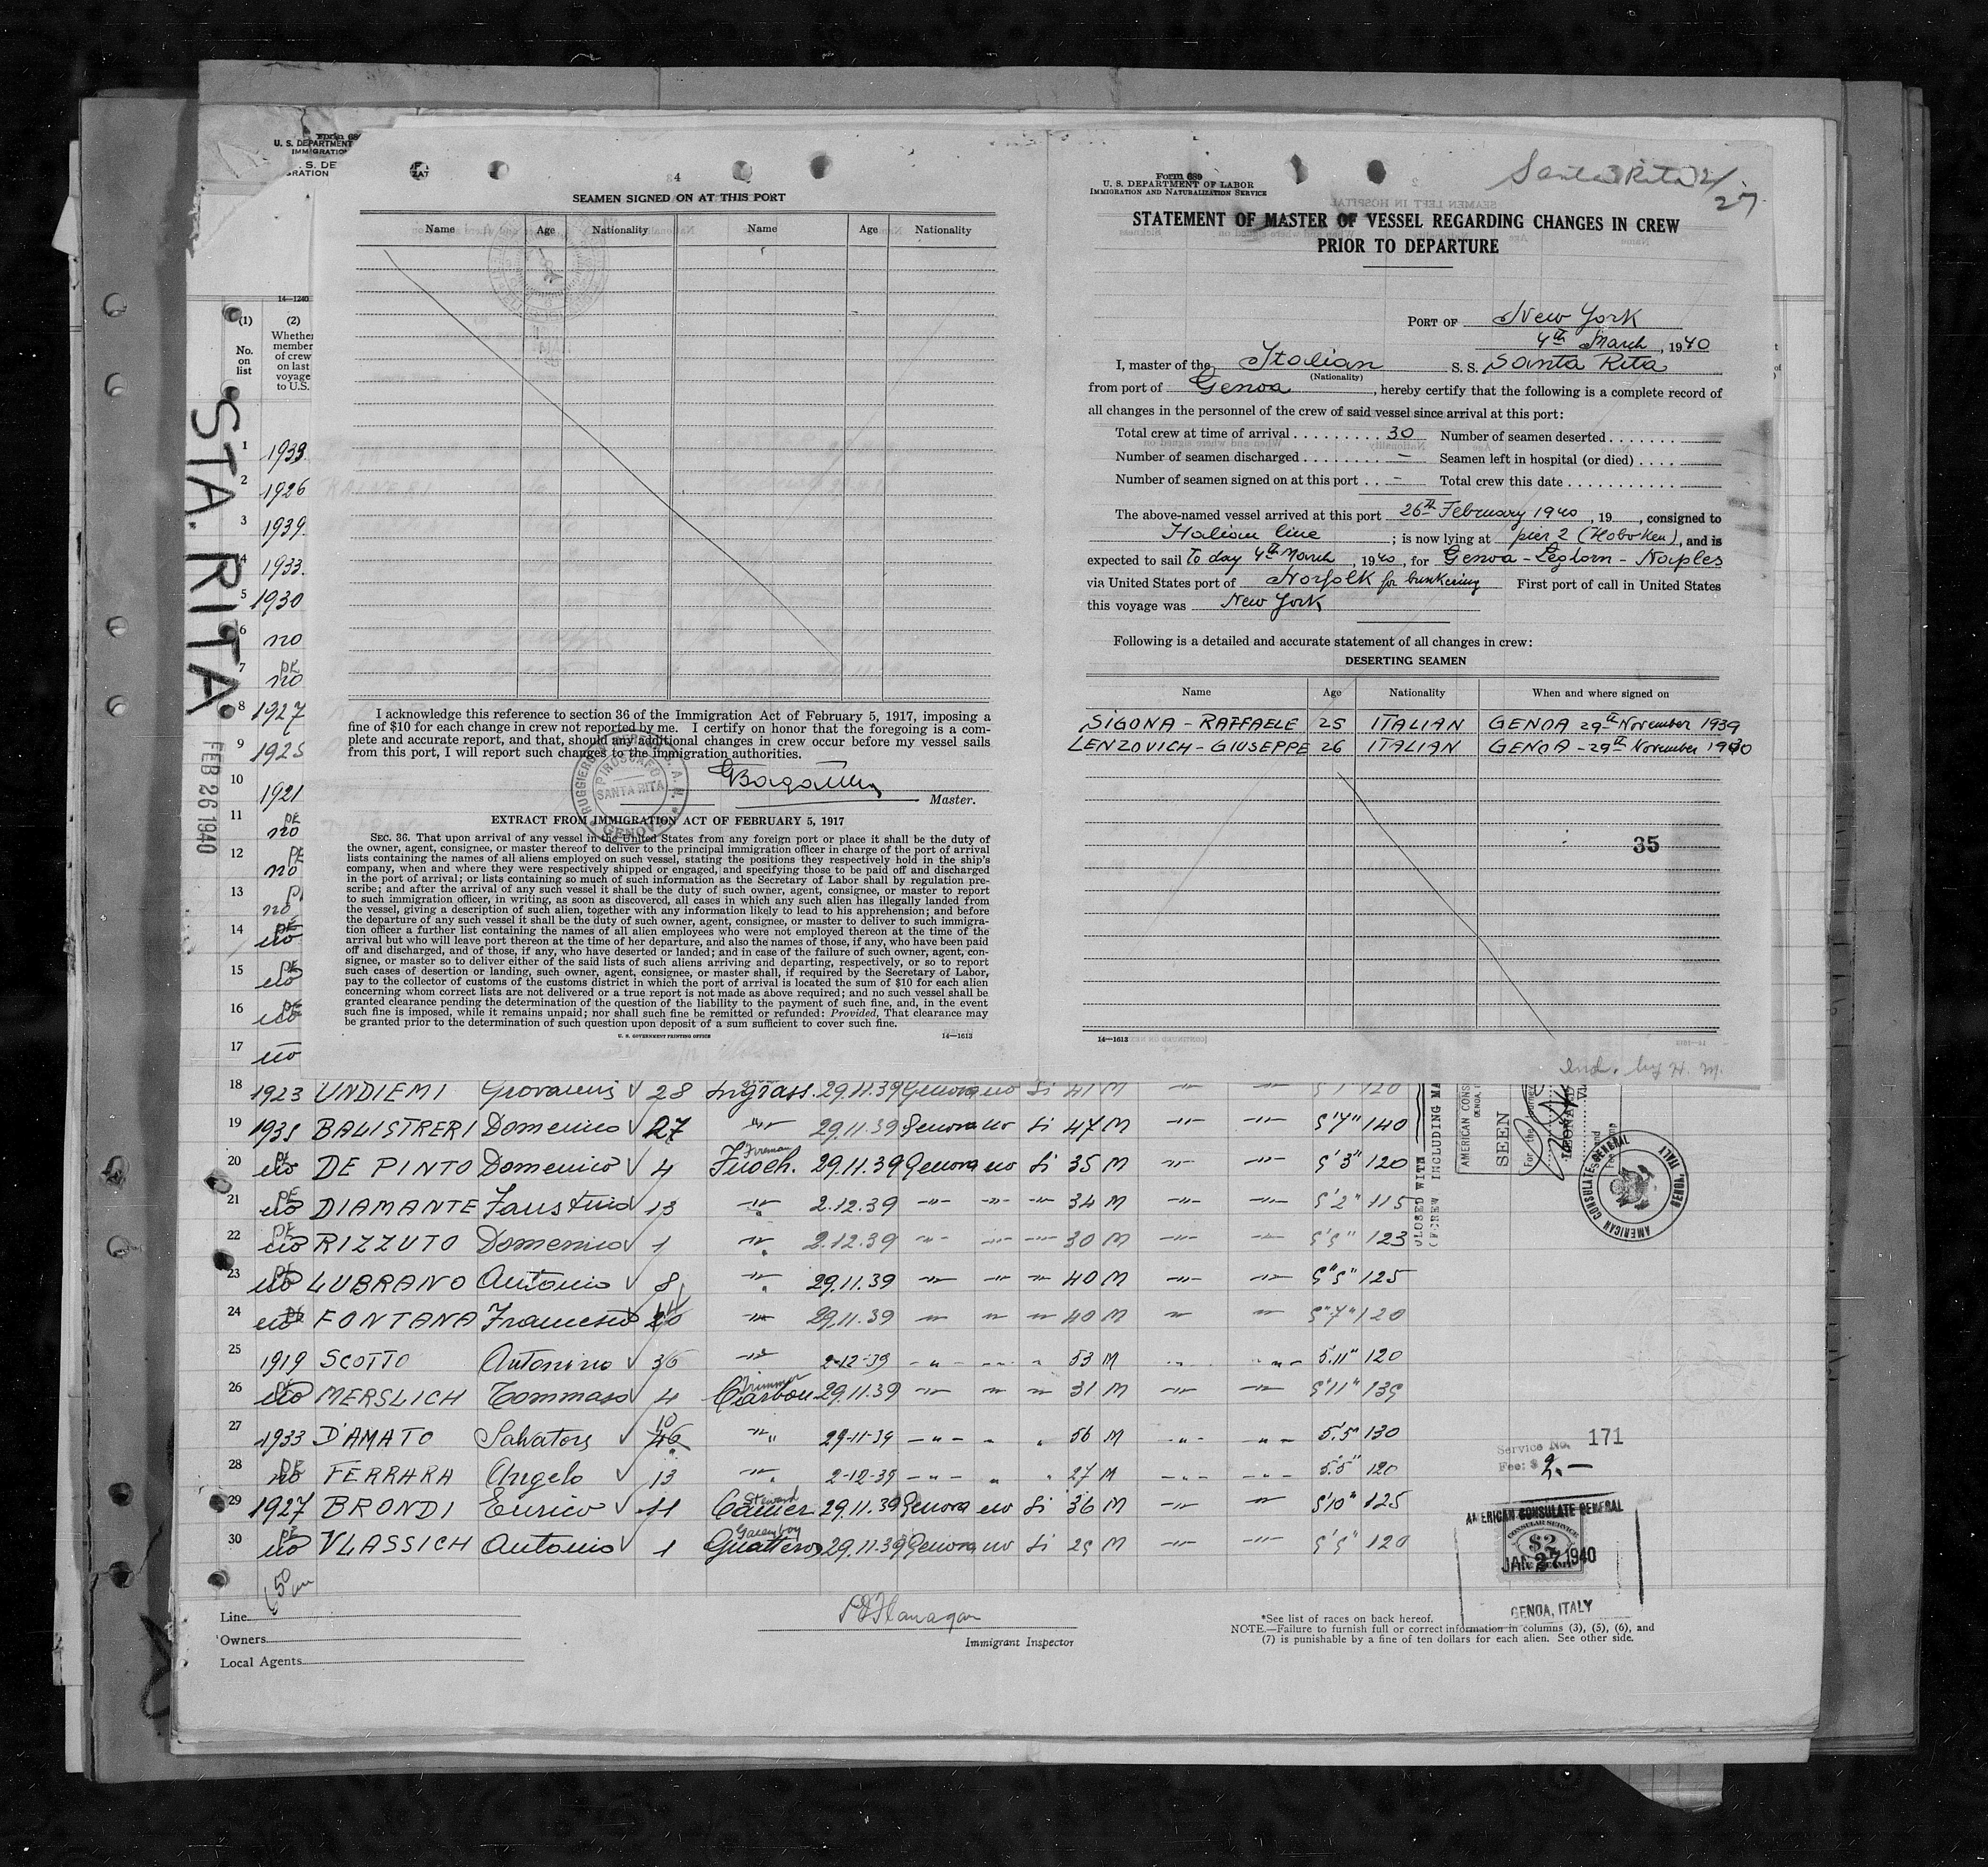 Form 689
U. S. DEPARTMENT
IMMIGRATION
S. DE
GRATION
14—1240
(1)
No.
on
list
(2)
Whether
member
of crew
on last
voyage
to U.S.
STA. RITA
FEB 26 1940
1 1939
2 1926
3 1939
4 1933
5 1930
6 no
7 no
8 1927
9 1925
10 1921
11 no
12 no
13 no
14 no
15 no
16 no
17 no
4
SEAMEN SIGNED ON AT THIS PORT
Name Age Nationality Name Age Nationality
I acknowledge this reference to section 36 of the Immigration Act of February 5, 1917, imposing a
fine of $10 for each change in crew not reported by me. I certify on honor that the foregoing is a com-
plete and accurate report, and that, should any additional changes in crew occur before my vessel sails
from this port, I will report such changes to the immigration authorities.
PIROSCAFO
SANTA RITA
GENOVA
Master.
EXTRACT FROM IMMIGRATION ACT OF FEBRUARY 5, 1917
SEC. 36. That upon arrival of any vessel in the United States from any foreign port or place it shall be the duty of
the owner, agent, consignee, or master thereof to deliver to the principal immigration officer in charge of the port of arrival
lists containing the names of all aliens employed on such vessel, stating the positions they respectively hold in the ship's
company, when and where they were respectively shipped or engaged, and specifying those to be paid off and discharged
in the port of arrival; or lists containing so much of such information as the Secretary of Labor shall by regulation pre-
scribe; and after the arrival of any such vessel it shall be the duty of such owner, agent, consignee, or master to report
to such immigration officer, in writing, as soon as discovered, all cases in which any such alien has illegally landed from
the vessel, giving a description of such alien, together with any information likely to lead to his apprehension; and before
the departure of any such vessel it shall be the duty of such owner, agent, consignee, or master to deliver to such immigra-
tion officer a further list containing the names of all alien employees who were not employed thereon at the time of the
arrival but who will leave port thereon at the time of her departure, and also the names of those, if any, who have been paid
off and discharged, and of those, if any, who have deserted or landed; and in case of the failure of such owner, agent, con-
signee, or master so to deliver either of the said lists of such aliens arriving and departing, respectively, or so to report
such cases of desertion or landing, such owner, agent, consignee, or master shall, if required by the Secretary of Labor,
pay to the collector of customs of the customs district in which the port of arrival is located the sum of $10 for each alien
concerning whom correct lists are not delivered or a true report is not made as above required; and no such vessel shall be
granted clearance pending the determination of the question of the liability to the payment of such fine, and, in the event
such fine is imposed, while it remains unpaid; nor shall such fine be remitted or refunded: Provided, That clearance may
be granted prior to the determination of such question upon deposit of a sum sufficient to cover such fine.
U. S. GOVERNMENT PRINTING OFFICE 14—1613
Santa Rita 2/27
Form 689
U. S. DEPARTMENT OF LABOR
IMMIGRATION AND NATURALIZATION SERVICE
STATEMENT OF MASTER OF VESSEL REGARDING CHANGES IN CREW
PRIOR TO DEPARTURE
PORT OF New York
4th March, 1940
I, master of the Italian S. S. Santa Rita
(Nationality)
from port of Genoa, hereby certify that the following is a complete record of
all changes in the personnel of the crew of said vessel since arrival at this port:
Total crew at time of arrival . . . . . . . . . 30 Number of seamen deserted . . . . . . .
Number of seamen discharged . . . . . . . . – Seamen left in hospital (or died) . . . .
Number of seamen signed on at this port . . – Total crew this date . . . . . . . . . . .
The above-named vessel arrived at this port 26th February 1940, 19 , consigned to
Italian line; is now lying at pier 2 (Hoboken), and is
expected to sail to day 4th March, 1940, for Genoa - Leghorn - Naples
via United States port of Norfolk for bunkering First port of call in United States
this voyage was New York
Following is a detailed and accurate statement of all changes in crew:
DESERTING SEAMEN
Name Age Nationality When and where signed on
SIGONA - RAFFAELE 25 ITALIAN GENOA 29th November 1939
LENZOVICH - GIUSEPPE 26 ITALIAN GENOA - 29th November 1930
35
14—1613
Ind. by H. M.
18 1923 UNDIEMI Giovanni 28 Ingrass. 29.11.39 Genova no Si 41 M 120
19 1935 BALISTRERI Domenico 27 29.11.39 Genova no Si 47 M 5'4" 140
20 no DE PINTO Domenico 4 Fuoch. Fireman 29.11.39 Genova no Si 35 M 5'3" 120
21 no DIAMANTE Faustino 13 2.12.39 34 M 5'2" 115
22 no RIZZUTO Domenico 1 2.12.39 30 M 5'5" 123
23 no LUBRANO Antonio 8 29.11.39 40 M 5"5" 125
24 no FONTANA Francesco 29.11.39 40 M 5"7" 120
25 1919 SCOTTO Antonino 36 2-12-39 53 M 5.11" 120
26 no MERSLICH Tommaso 4 Carbon Trimmer 29.11.39 31 M 5'11" 135
27 1933 D'AMATO Salvatore 10 29-11-39 56 M 5.5" 130
28 no FERRARA Angelo 13 2-12-39 27 M 5'5" 120
29 1927 BRONDI Enrico 11 Camer. Steward 29.11.39 Genova no Si 36 M 5'10" 125
30 no VLASSICH Antonio 1 29.11.39 Genova no Si 25 M 5'5" 120
CLOSED WITH
CREW INCLUDING MA
AMERICAN CONS
GENOA,
SEEN
For the journey
AMERICAN CONSULATE GENERAL
GENOA, ITALY
Service No. 171
Fee: $ 2.–
AMERICAN CONSULATE GENERAL
CONSULAR SERVICE
$2
JAN 27 1940
GENOA, ITALY
Line
Owners
Local Agents
Flanagan
Immigrant Inspector
*See list of races on back hereof.
NOTE.—Failure to furnish full or correct information in columns (3), (5), (6), and
(7) is punishable by a fine of ten dollars for each alien. See other side.